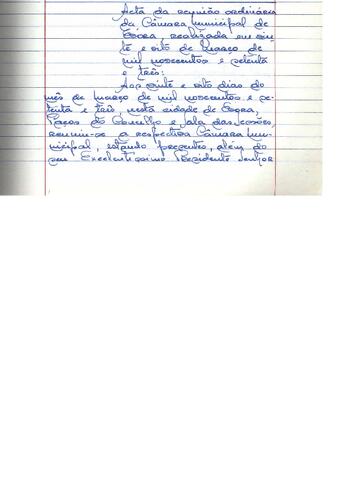 Acta da reunião ordinária
da Câmara Municipal de
Évora, realizada em vin-
te e oito de Março de
mil novecentos e setenta
e três:
Aos vinte e oito dias do
mês de Março de mil novecentos e se-
tenta e três, nesta cidade de Évora,
Paços do Concelho e sala das sessões,
reuniu-se a respectiva Câmara Mu-
nicipal, estando presentes, além do
seu Excelentíssimo Presidente Senhor